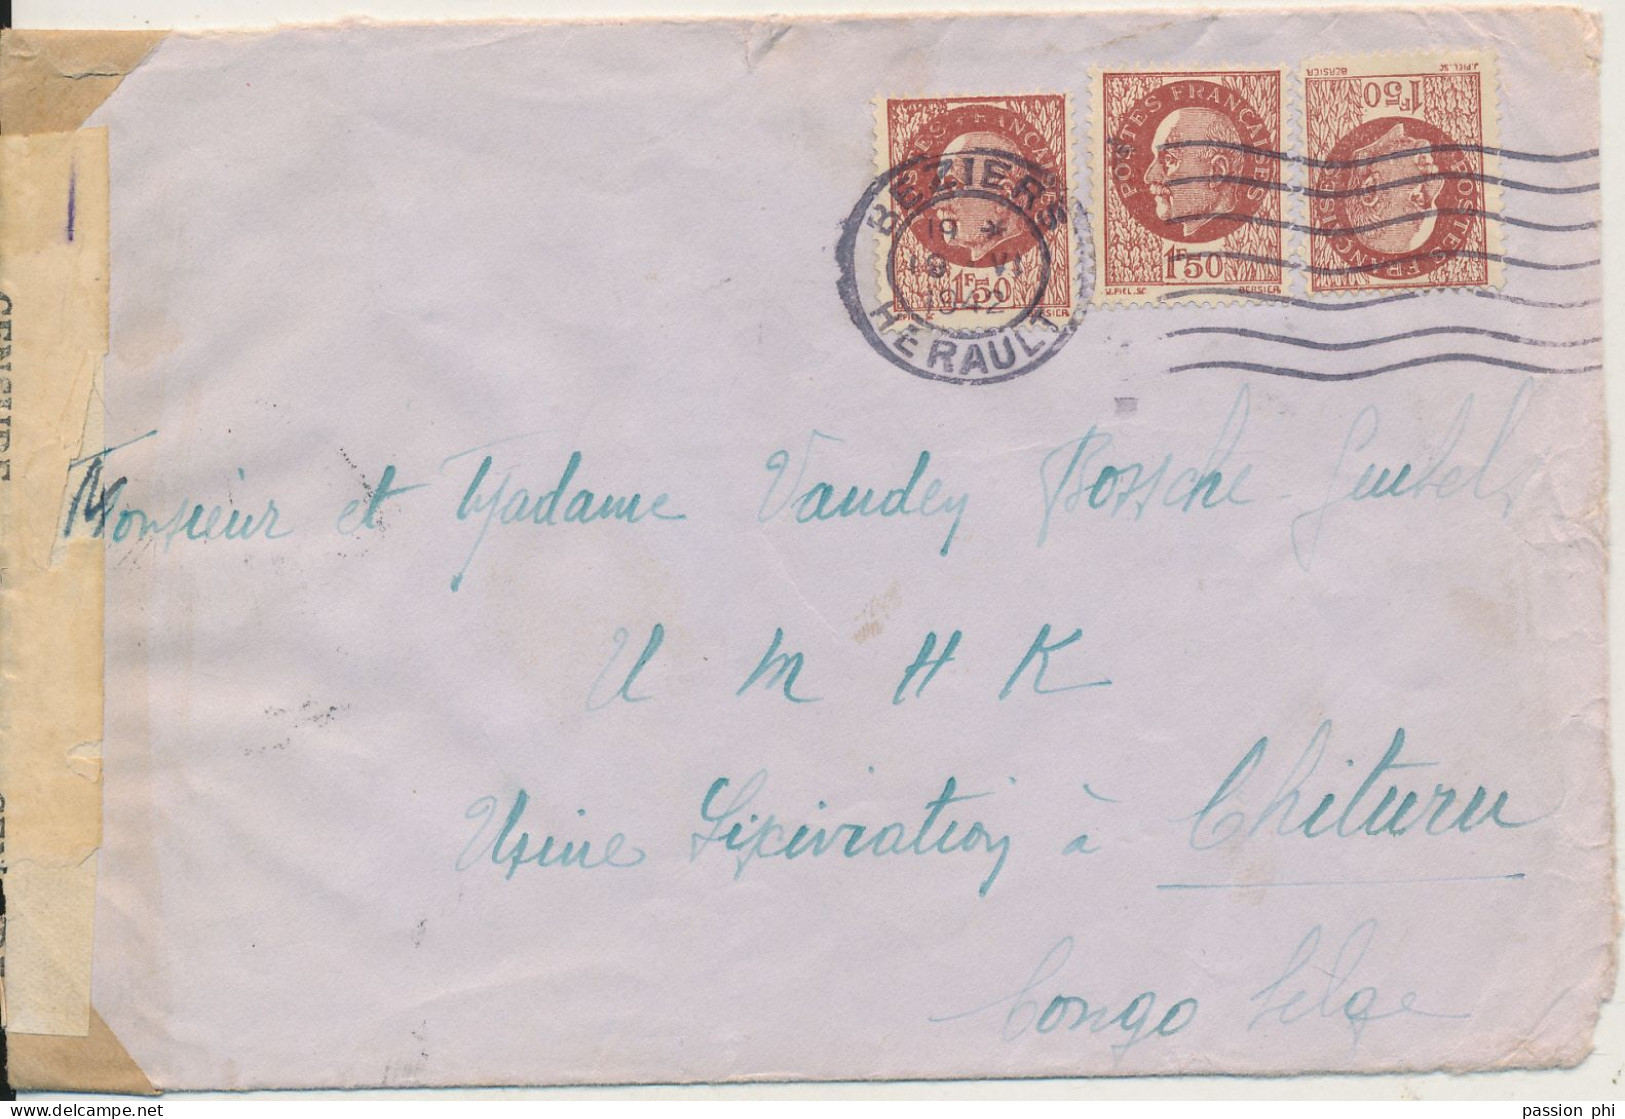 POSTES FRANÇAISES
1F50
J.PIEL.SC BERSIER
POSTES FRANÇAISES
1F50
J.PIEL.SC BERSIER
POSTES FRANÇAISES
1F50
J.PIEL.SC BERSIER
BEZIERS
19 *
18 VI
1942
HERAULT
CENSURE
Monsieur et Madame Vanden Bossche
U M H K
Usine Lixiviation à Chituru
Congo Belge
passion phi